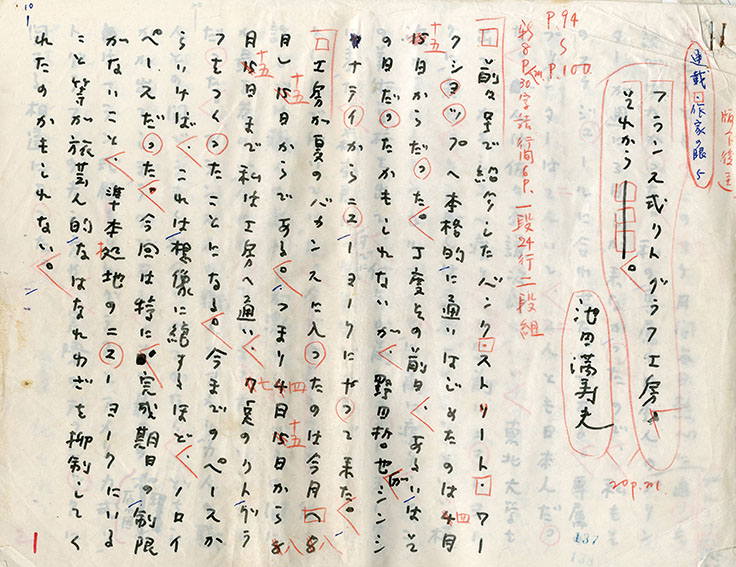 11
版下後送
連載・作家の眼5
フランス式リトグラフ工房・
それから――。
池田満寿夫
20p. m1.
P.94
S
P.100
新8P 30字詰 行間6P. 一段24行二段組
前々号で紹介したバンク・ストリート・ワー
クショップへ本格的に通いはじめたのは4月
15日からだった。丁度その前日、あるいはそ
の日だったかもしれないが、野田哲也がシンシ
ナティからニューヨークにやって来た。
工房が夏のバカンスに入ったのは今月(8
月)15日からである。つまり4月15日から8
月15日まで私は工房へ通い、7点のリトグラ
フをつくったことになる。今までのペースか
らいけば、これは想像に絶するほど、ノロイ
ペースだった。今回は特に完成期日の制限
がないこと、準本拠地のニューヨークにいる
こと等が旅芸人的なはなれわざを抑制してく
れたのかもしれない。
137
10
1